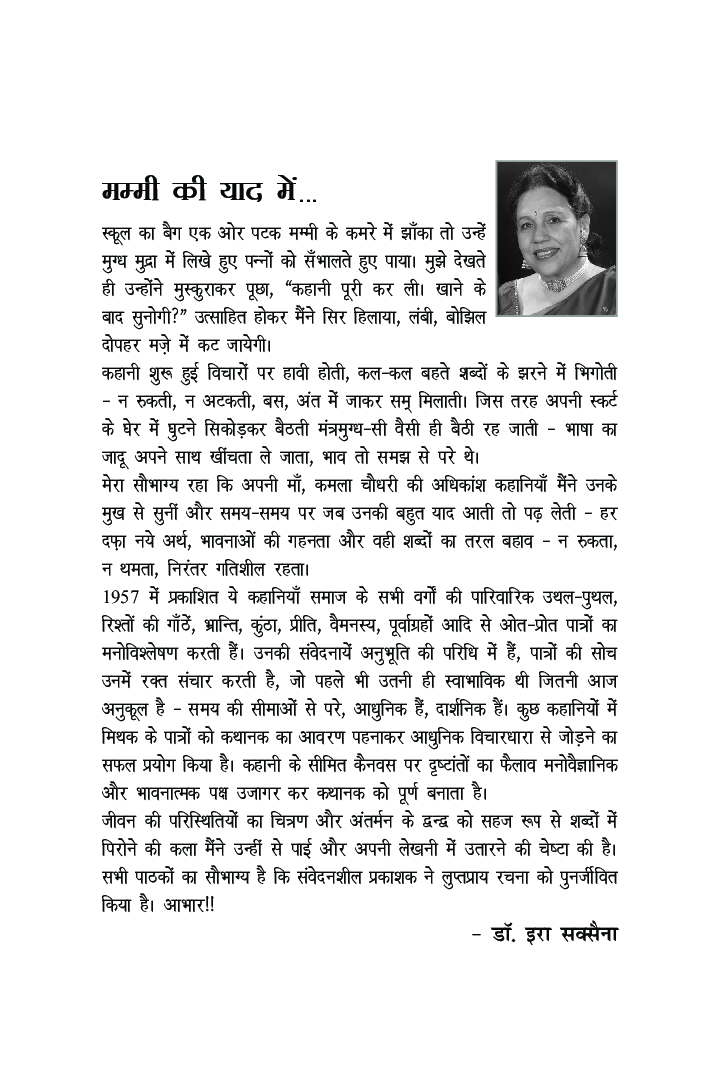 मम्मी की याद में...
स्कूल का बैग एक ओर पटक मम्मी के कमरे में झाँका तो उन्हें
मुग्ध मुद्रा में लिखे हुए पन्नों को सँभालते हुए पाया। मुझे देखते
ही उन्होंने मुस्कुराकर पूछा, “कहानी पूरी कर ली। खाने के
बाद सुनोगी?” उत्साहित होकर मैंने सिर हिलाया, लंबी, बोझिल
दोपहर मज़े में कट जायेगी।
कहानी शुरू हुई विचारों पर हावी होती, कल-कल बहते शब्दों के झरने में भिगोती
- न रुकती, न अटकती, बस, अंत में जाकर सम् मिलाती। जिस तरह अपनी स्कर्ट
के घेर में घुटने सिकोड़कर बैठती मंत्रमुग्ध-सी वैसी ही बैठी रह जाती - भाषा का
जादू अपने साथ खींचता ले जाता, भाव तो समझ से परे थे।
मेरा सौभाग्य रहा कि अपनी माँ, कमला चौधरी की अधिकांश कहानियाँ मैंने उनके
मुख से सुनीं और समय-समय पर जब उनकी बहुत याद आती तो पढ़ लेती - हर
दफ़ा नये अर्थ, भावनाओं की गहनता और वही शब्दों का तरल बहाव - न रुकता,
न थमता, निरंतर गतिशील रहता।
1957 में प्रकाशित ये कहानियाँ समाज के सभी वर्गों की पारिवारिक उथल-पुथल,
रिश्तों की गाँठें, भ्रान्ति, कुंठा, प्रीति, वैमनस्य, पूर्वाग्रहों आदि से ओत-प्रोत पात्रों का
मनोविश्लेषण करती हैं। उनकी संवेदनायें अनुभूति की परिधि में हैं, पात्रों की सोच
उनमें रक्त संचार करती है, जो पहले भी उतनी ही स्वाभाविक थी जितनी आज
अनुकूल है - समय की सीमाओं से परे, आधुनिक हैं, दार्शनिक हैं। कुछ कहानियों में
मिथक के पात्रों को कथानक का आवरण पहनाकर आधुनिक विचारधारा से जोड़ने का
सफल प्रयोग किया है। कहानी के सीमित कैनवस पर दृष्टांतों का फैलाव मनोवैज्ञानिक
और भावनात्मक पक्ष उजागर कर कथानक को पूर्ण बनाता है।
जीवन की परिस्थितियों का चित्रण और अंतर्मन के द्वन्द्व को सहज रूप से शब्दों में
पिरोने की कला मैंने उन्हीं से पाई और अपनी लेखनी में उतारने की चेष्टा की है।
सभी पाठकों का सौभाग्य है कि संवेदनशील प्रकाशक ने लुप्तप्राय रचना को पुनर्जीवित
किया है। आभार!!
- डॉ. इरा सक्सैना